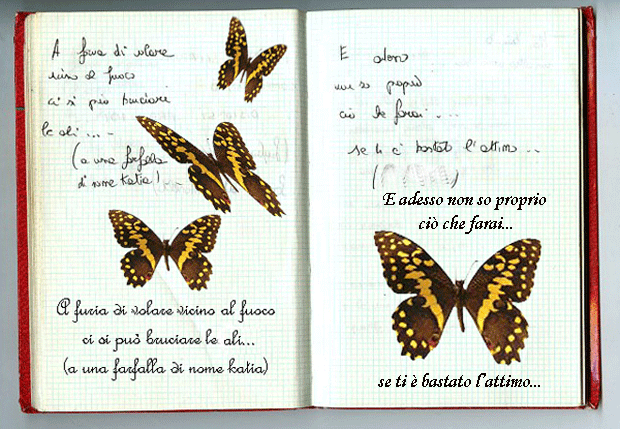 A furia di volare
vicino al fuoco
ci si può bruciare
le ali ....
(a una farfalla
di nome Katia!)
A furia di volare vicino al fuoco
ci si può bruciare le ali...
(a una farfalla di nome katia)
E adesso
non so proprio
ciò che farai ....
se ti è bastato l'attimo ...
E adesso non so proprio
ciò che farai...
se ti è bastato l'attimo...